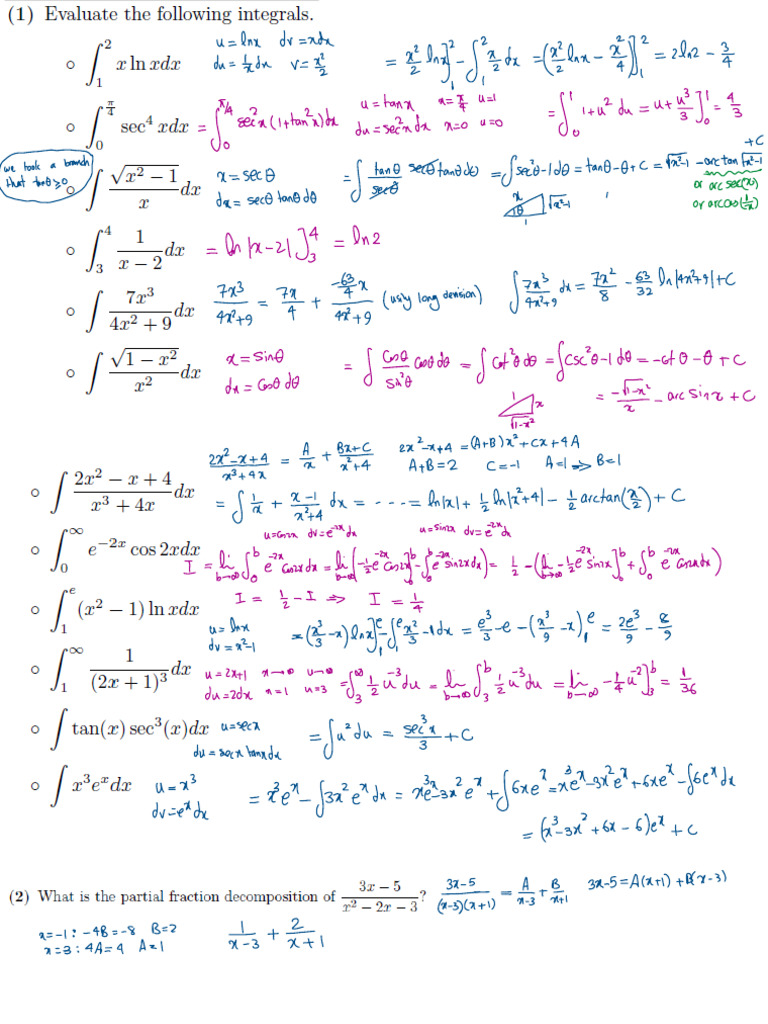 (1) Evaluate the following integrals.
∘ ∫₁² x ln x dx   u = lnx  dv = xdx   du = 1/x dx  v = x²/2   = x²/2 lnx]₁² − ∫₁² x/2 dx = (x²/2 lnx − x²/4)]₁² = 2ln2 − 3/4
∘ ∫₀^{π/4} sec⁴ x dx = ∫₀^{π/4} sec²x (1+tan²x)dx   u = tanx  x = π/4  u=1   du = sec²x dx  x=0  u=0   = ∫₀¹ 1+u² du = u + u³/3]₀¹ = 4/3
we took a branch that tanθ ≥ 0
∘ ∫ √(x² − 1)/x dx   x = secθ   dx = secθ tanθ dθ   = ∫ tanθ/secθ secθ tanθ dθ = ∫ sec²θ −1 dθ = tanθ − θ + C = √(x²−1) − arctan √(x²−1) + C
or arc sec(x)
or arccos(1/x)
x  θ  √(x²−1)  1
∘ ∫₃⁴ 1/(x − 2) dx = ln|x−2|]₃⁴ = ln2
∘ ∫ 7x³/(4x² + 9) dx   7x³/(4x²+9) = 7x/4 + (−63/4 x)/(4x²+9) (using long division)   ∫ 7x³/(4x²+9) dx = 7x²/8 − 63/32 ln|4x²+9| + C
∘ ∫ √(1 − x²)/x² dx   x = sinθ   dx = cosθ dθ   = ∫ cosθ/sin²θ cosθ dθ = ∫ cot²θ dθ = ∫ csc²θ −1 dθ = −cotθ − θ + C
1  x  √(1−x²)   = −√(1−x²)/x − arc sin x + C
∘ ∫ (2x² − x + 4)/(x³ + 4x) dx   (2x²−x+4)/(x³+4x) = A/x + (Bx+C)/(x²+4)   2x²−x+4 = (A+B)x² + Cx + 4A
A+B = 2   C=−1   A=1 ⇒ B=1
= ∫ 1/x + (x−1)/(x²+4) dx = ---- = ln|x| + 1/2 ln|x²+4| − 1/2 arctan(x/2) + C
u=cos2x  dv=e^{−2x}dx   u=sin2x  dv=e^{−2x}d
∘ ∫₀^∞ e^{−2x} cos 2x dx   I = lim_{b→∞} ∫₀ᵇ e^{−2x} cos2x dx = lim_{b→∞} [−1/2 e^{−2x} cos2x]₀ᵇ − ∫₀ᵇ e^{−2x} sin2x dx) = 1/2 − (lim_{b→∞} −1/2 e^{−2x} sin2x]₀ᵇ + ∫₀ᵇ e^{−2x} cos2x dx)
I = 1/2 − I ⇒ I = 1/4
∘ ∫₁ᵉ (x² − 1) ln x dx   u = lnx   dv = x²−1   = (x³/3 − x) lnx]₁ᵉ − ∫₁ᵉ x²/3 −1 dx = e³/3 − e − (x³/9 − x)₁ᵉ = 2e³/9 − 8/9
∘ ∫₁^∞ 1/(2x + 1)³ dx   u = 2x+1  x→∞  u→∞   du = 2dx  x=1  u=3   = ∫₃^∞ 1/2 u⁻³ du = lim_{b→∞} ∫₃ᵇ 1/2 u⁻³ du = lim_{b→∞} −1/4 u⁻²]₃ᵇ = 1/36
∘ ∫ tan(x) sec³(x)dx   u=secx   du = secx tanx dx   = ∫ u² du = sec³x/3 + C
∘ ∫ x³eˣ dx   u = x³   dv = eˣ dx   = x³eˣ − ∫ 3x²eˣ dx = x³eˣ − 3x²eˣ + ∫ 6xeˣ = x³eˣ − 3x²eˣ + 6xeˣ − ∫ 6eˣ dx
= (x³ − 3x² + 6x − 6)eˣ + C
(2) What is the partial fraction decomposition of (3x − 5)/(x² − 2x − 3)?   (3x−5)/((x−3)(x+1)) = A/(x−3) + B/(x+1)   3x−5 = A(x+1) + B(x−3)
x=−1 : −4B = −8  B=2
x=3 : 4A = 4  A=1   1/(x−3) + 2/(x+1)